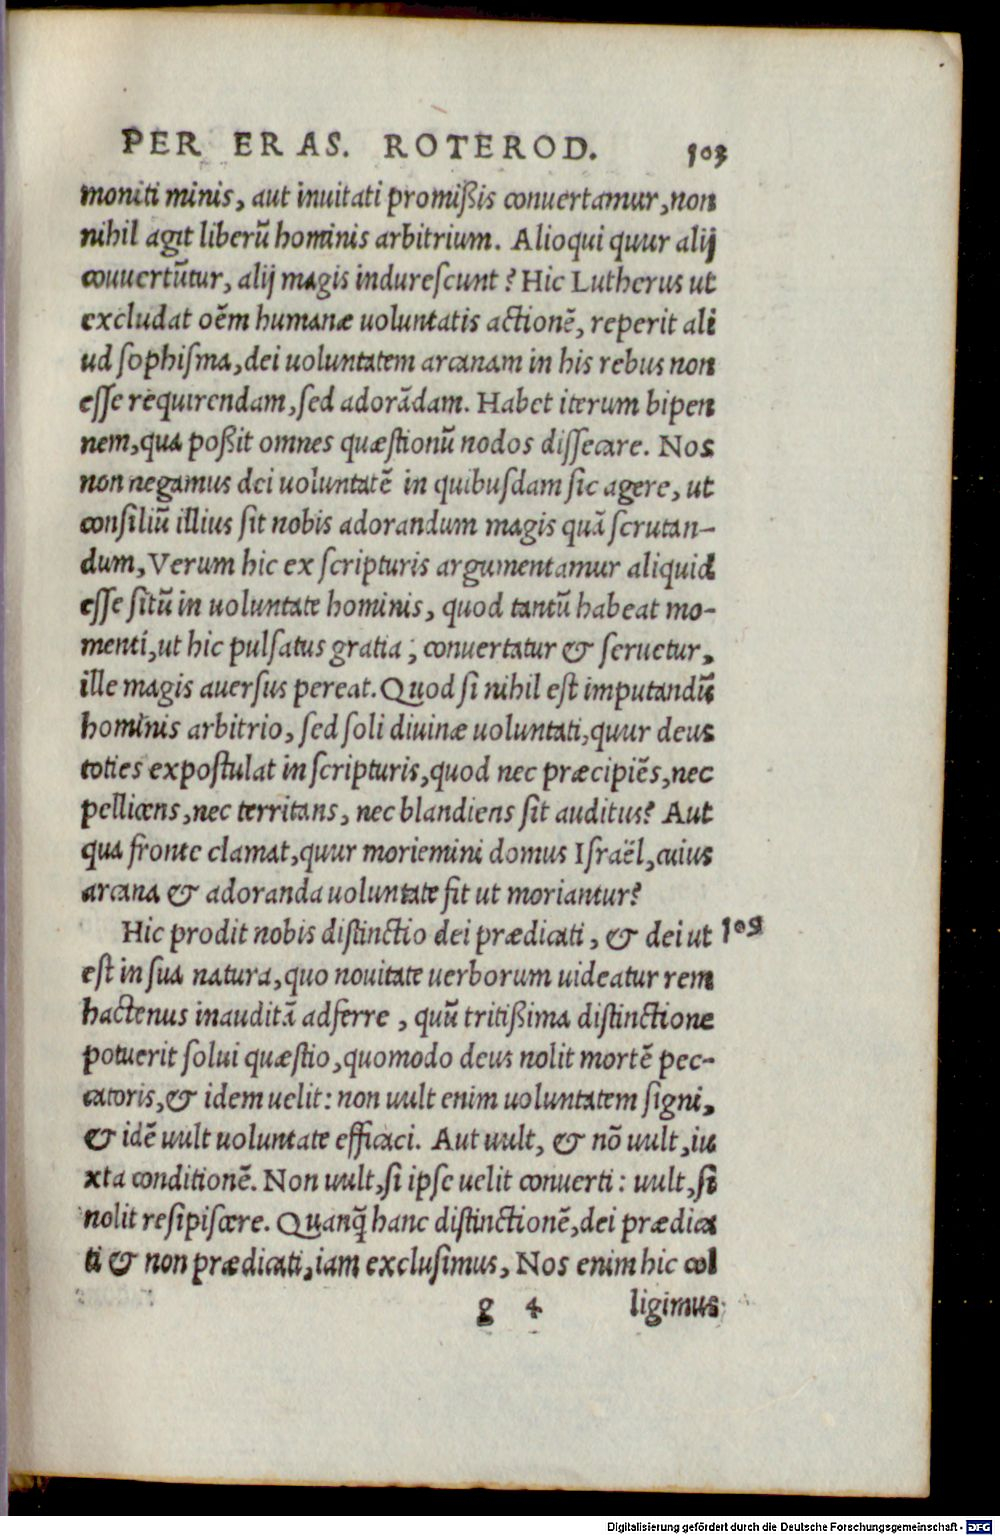 PER ERAS. ROTEROD. 103
moniti minis, aut inuitati promißis conuertamur, non
nihil agit liberũ hominis arbitrium. Alioqui quur alij
couuertũtur, alij magis indurescunt? Hic Lutherus ut
excludat oẽm humanæ uoluntatis actionẽ, reperit ali
ud sophisma, dei uoluntatem arcanam in his rebus non
esse requirendam, sed adorãdam. Habet iterum bipen
nem, qua poßit omnes quæstionũ nodos dissecare. Nos
non negamus dei uoluntatẽ in quibusdam sic agere, ut
consiliũ illius sit nobis adorandum magis quã scrutan-
dum, Verum hic ex scripturis argumentamur aliquid
esse sitũ in uoluntate hominis, quod tantũ habeat mo-
menti, ut hic pulsatus gratia, conuertatur & seruetur,
ille magis auersus pereat. Quod si nihil est imputandũ
hominis arbitrio, sed soli diuinæ uoluntati, quur deus
toties expostulat in scripturis, quod nec præcipiẽs, nec
pelliciens, nec territans, nec blandiens sit auditus? Aut
qua fronte clamat, quur moriemini domus Israël, cuius
arcana & adoranda uoluntate fit ut moriantur?
Hic prodit nobis distinctio dei prædicati, & dei ut 109
est in sua natura, quo nouitate uerborum uideatur rem
hactenus inauditã adferre, quũ tritißima distinctione
potuerit solui quæstio, quomodo deus nolit mortẽ pec-
catoris, & idem uelit: non uult enim uoluntatem signi,
& idẽ uult uoluntate efficaci. Aut uult, & nõ uult, iu
xta conditionẽ. Non uult, si ipse uelit conuerti: uult, si
nolit resipiscere. Quanq̃ hanc distinctionẽ, dei prædica
ti & non prædicati, iam exclusimus, Nos enim hic col
g 4 ligimus
Digitalisierung gefördert durch die Deutsche Forschungsgemeinschaft - DFG